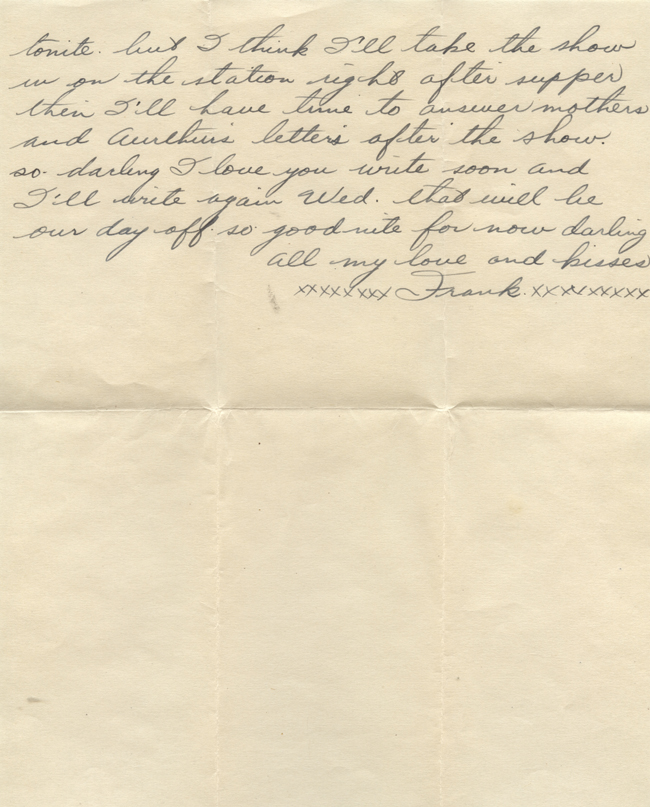 tonite. but I think I'll take the show
in on the station right after supper
then I'll have time to answer mothers
and letters after the show.
so. darling I love you write soon and
I'll write again Wed. that will be
our day off so goodnite for now darling
all my love and kisses
xxxxxxxx Frank. xxxxxxxxx